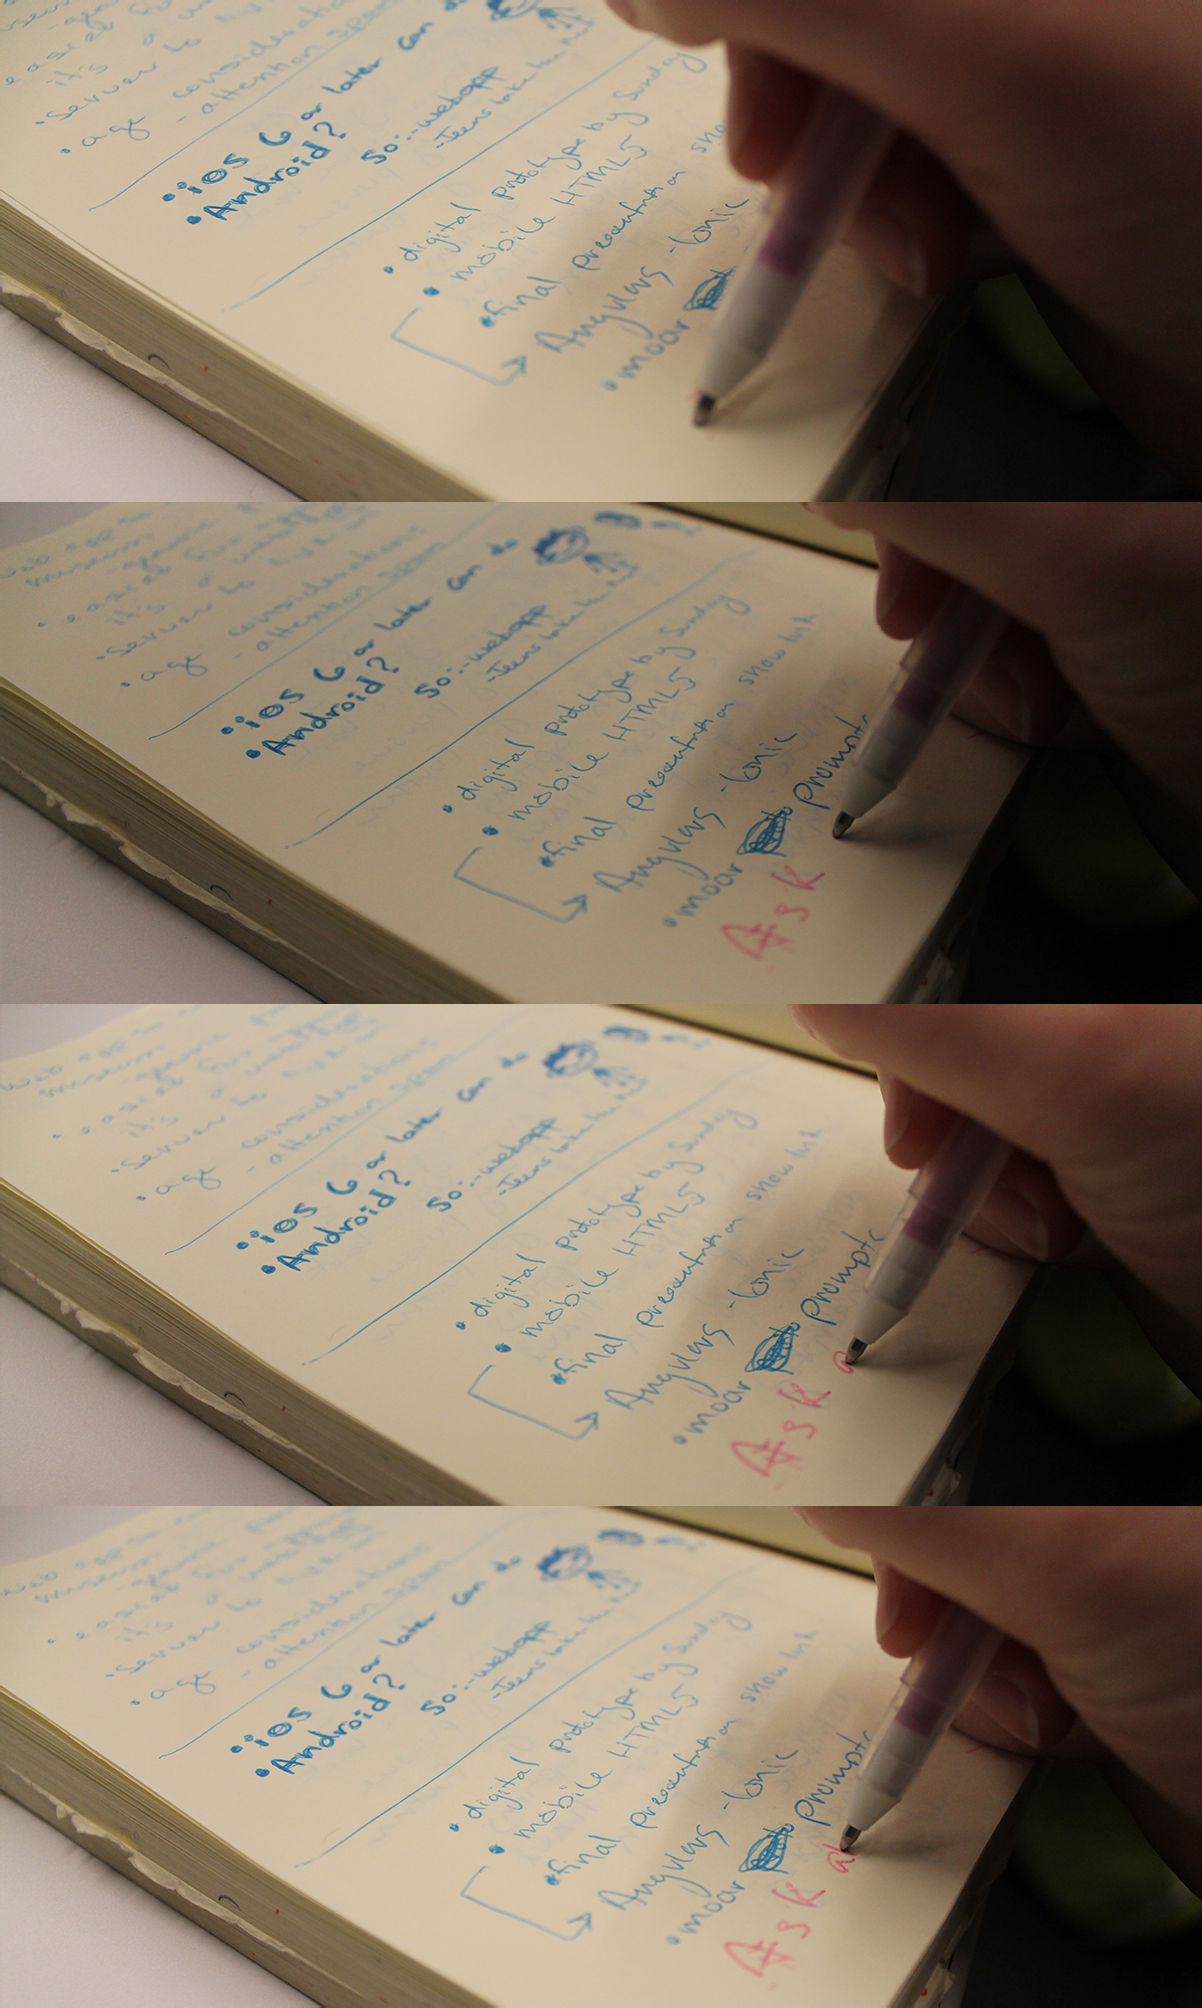 easier for
it's a
• Server to
• age considerations
- attention span
• iOS 6 or later can do
• Android?
So: - webapp
- Teens take
• digital prototype by Sunday
• mobile HTML5
• final presentation
→ AngularJS - Ionic
• moar
web app
museum
• easier for
it's a
• Server to
• age considerations
- attention span
• iOS 6 or later can do
• Android?
So: - webapp
- Teens take
• digital prototype by Sunday
• mobile HTML5
• final presentation show
→ AngularJS - Ionic
• moar prompts
Ask
web app
museum
• easier for
it's a
• Server to
• age considerations
- attention span
• iOS 6 or later can do
• Android?
So: - webapp
- Teens take
• digital prototype by Sunday
• mobile HTML5
• final presentation show
→ AngularJS - Ionic
• moar prompts
Ask a
web app
museum
• easier for
it's a
• Server to
• age considerations
- attention span
• iOS 6 or later can do
• Android?
So: - webapp
- Teens take
• digital prototype by Sunday
• mobile HTML5
• final presentation show
→ AngularJS - Ionic
• moar prompts
Ask ab